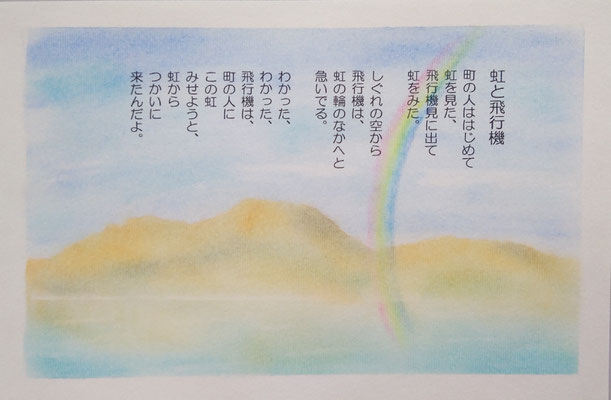 虹と飛行機
町の人ははじめて
虹を見た、
飛行機見に出て
虹をみた。
しぐれの空から
飛行機は、
虹の輪のなかへと
急いでる。
わかった、
わかった、
飛行機は、
町の人に
この虹
みせようと、
虹から
つかいに
来たんだよ。